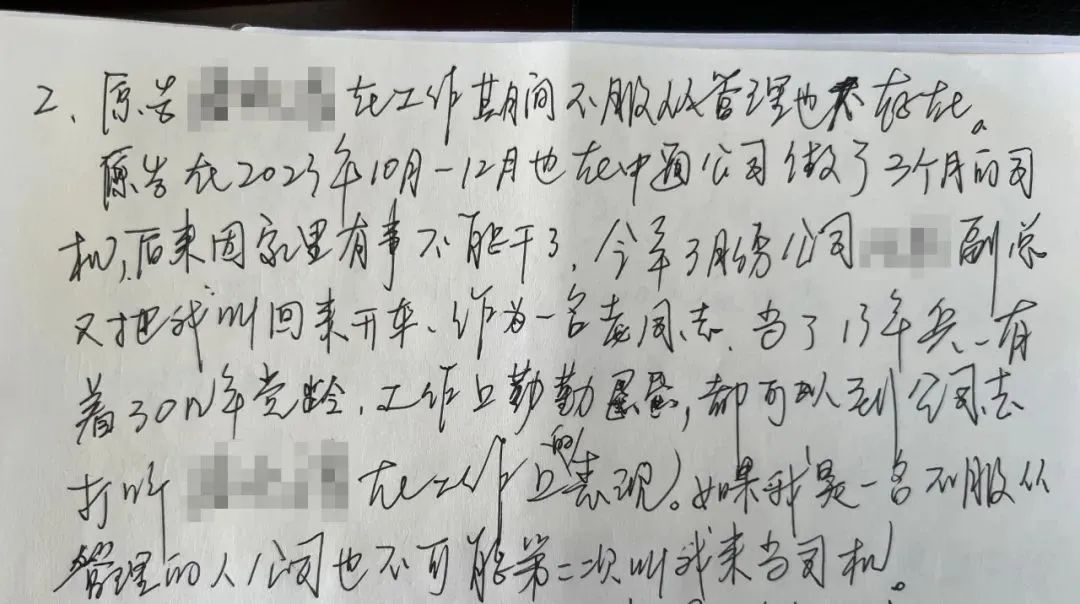 2、原告 在工作期间不服从管理也不存在。
原告在2023年10月-12月也在中通公司做了3个月的司
机,后来因家里有事不能干了,今年3月 公司 副总
又把我叫回来开车、作为一名老同志、当了13年兵、有
着30几年党龄、工作上勤勤恳恳,都可以到公司去
打听 在工作上的表现。如果我是一名不服从
管理的人公司也不可能第二次叫我来当司机。